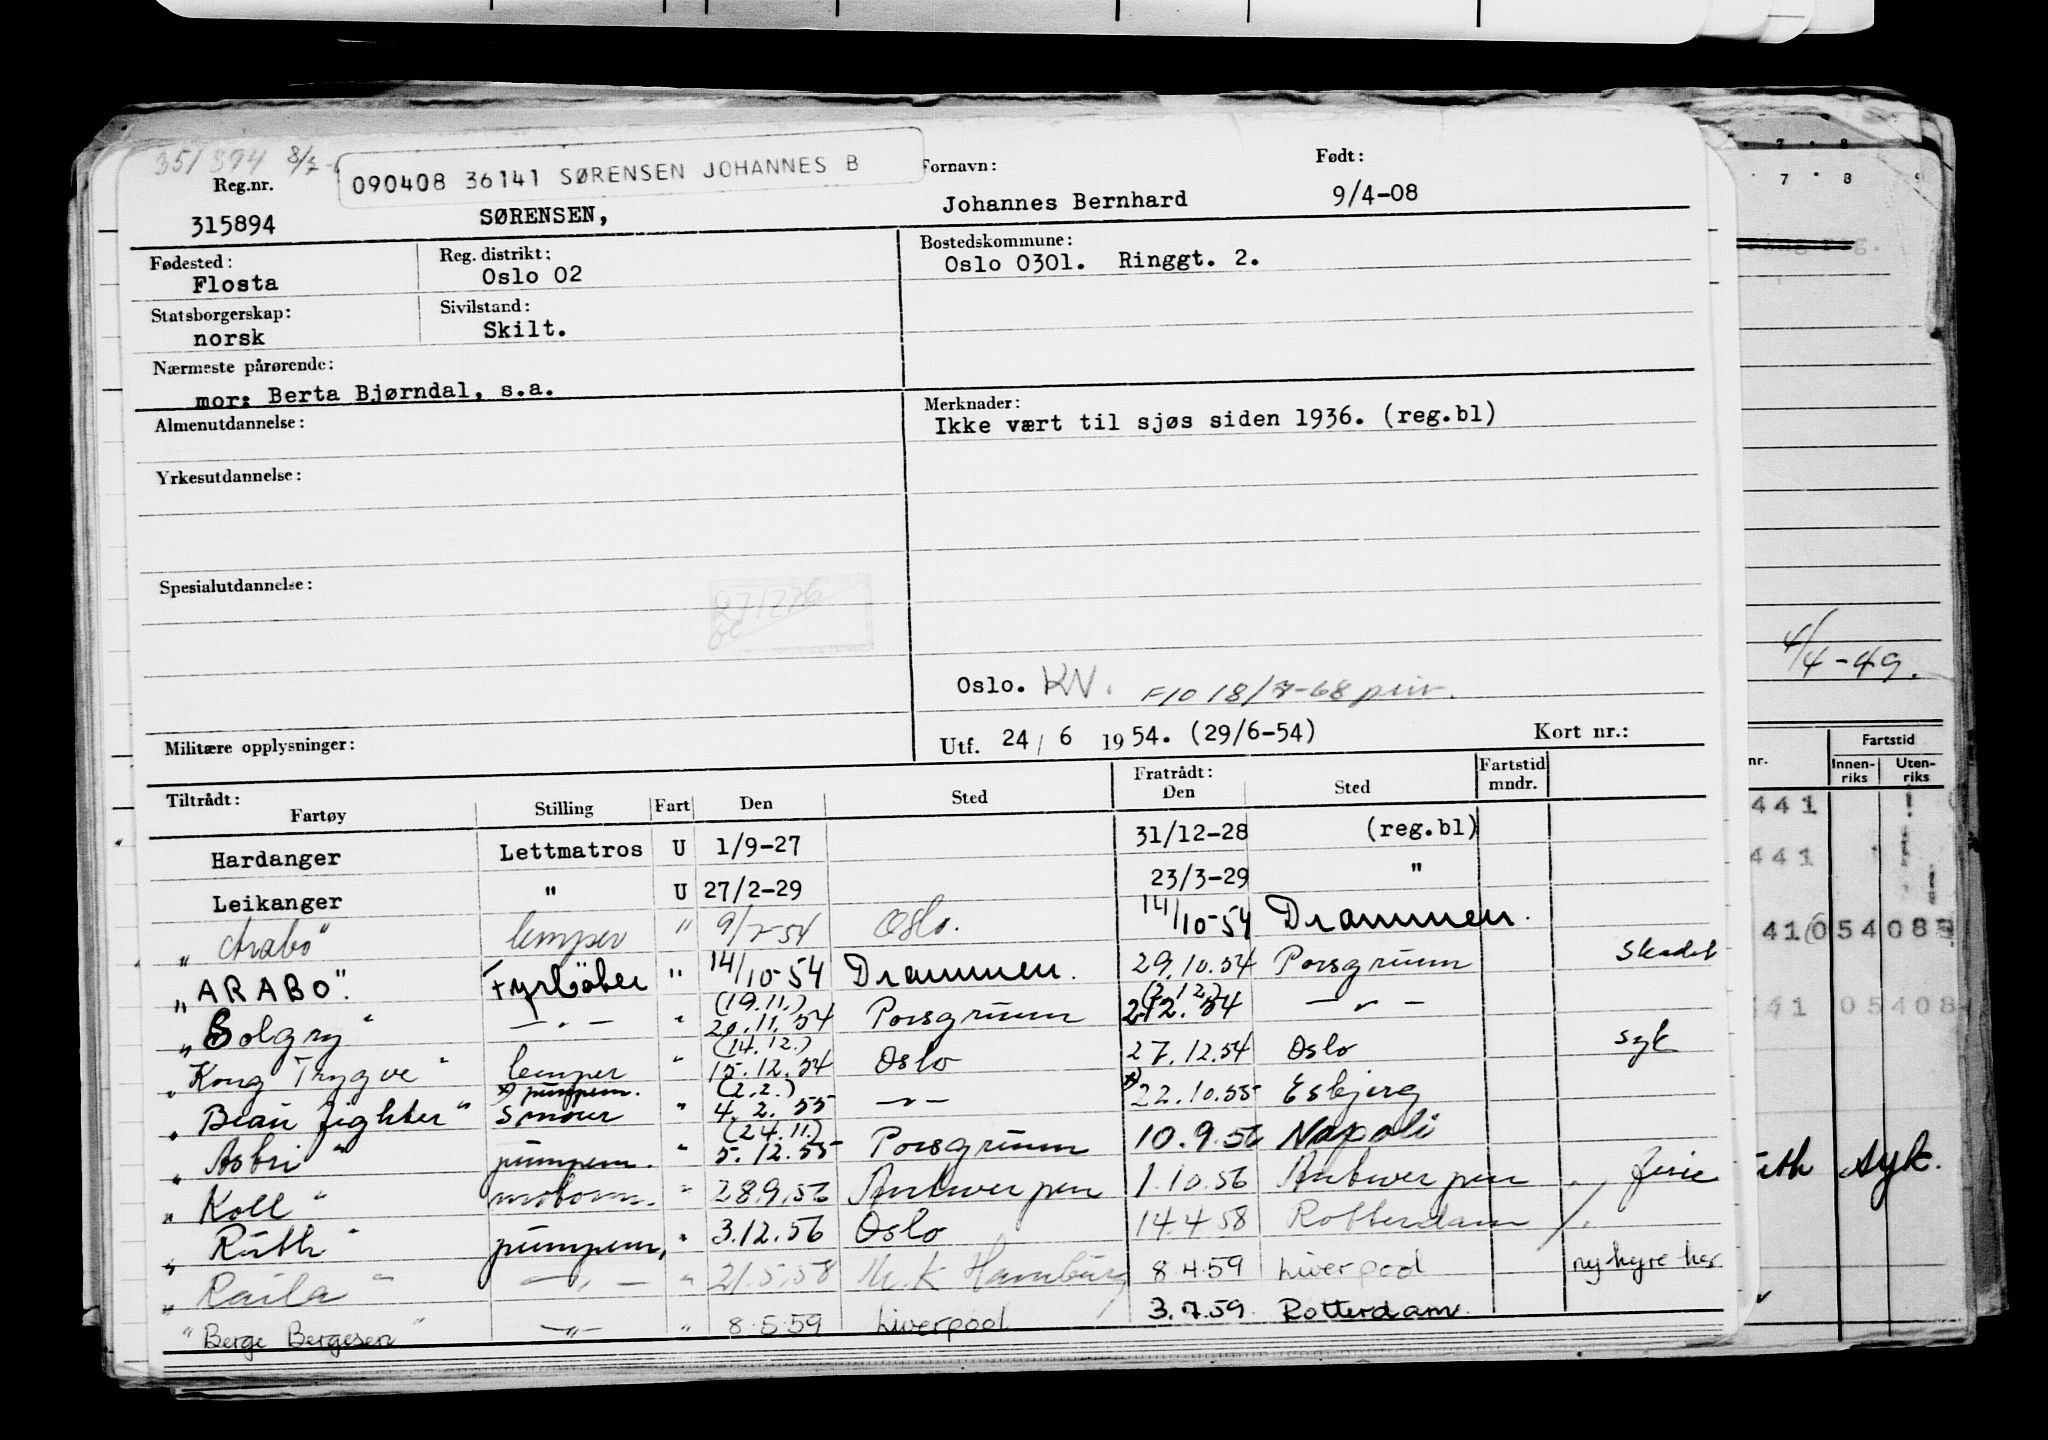 351 894 8/2-
090408 36141 SØRENSEN JOHANNES B
Reg.nr. Fornavn: Født:
315894 SØRENSEN, Johannes Bernhard 9/4-08
Fødested: Reg. distrikt: Bostedskommune:
Flosta Oslo 02 Oslo 0301. Ringgt. 2.
Statsborgerskap: Sivilstand:
norsk Skilt.
Nærmeste pårørende:
mor: Berta Bjørndal, s.a.
Almenutdannelse: Merknader:
Ikke vært til sjøs siden 1936. (reg.bl)
Yrkesutdannelse:
Spesialutdannelse:
271276
Oslo. KN. F10 18/7-68 priv.
Militære opplysninger: Utf. 24/6 1954. (29/6-54) Kort nr.:
Tiltrådt: Fratrådt: Fartstid
Fartøy Stilling Fart Den Sted Den Sted mndr.
Hardanger Lettmatros U 1/9-27 31/12-28 (reg.bl)
Leikanger " U 27/2-29 23/3-29 "
"Arabo" lemper " 9/7-54 Oslo. 14/10-54 Drammen.
"ARABO". Fyrböber " 14/10-54 Drammen. 29.10.54 Porsgrunn skadet
(19.11.) (2.12.)
"Solgry" — " — " 20.11.54 Porsgrunn 2.12.54 — " —
(14.12.)
"Kong Trygve" lemper " 15.12.54 Oslo 27.12.54 Oslo syk
x) pumpem. (2.2.)
"Beau fighter" smører " 4.2.55 — " — x) 22.10.55 Esbjerg
(24.11.)
"Asbri" pumpem. " 5.12.55 Porsgrunn 10.9.56 Napoli
"Koll" motorm. " 28.9.56 Antwerpen 1.10.56 Antwerpen ferie
"Ruth" pumpem. " 3.12.56 Oslo 14.4.58 Rotterdam
"Raila" — " — " 21.5.58 M.K Hamburg 8.4.59 Liverpool ny hyre her
"Berge Bergesen" — " — " 8.5.59 Liverpool 3.7.59 Rotterdam
7 8
7 8 9
4/4-49.
nr. Fartstid
Innen-riks Uten-riks
441
441
41 054085
41 05408
syk.